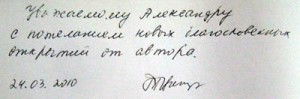 Уважаемому Александру
с пожеланием новых благословенных
открытий от автора.
24.03.2010